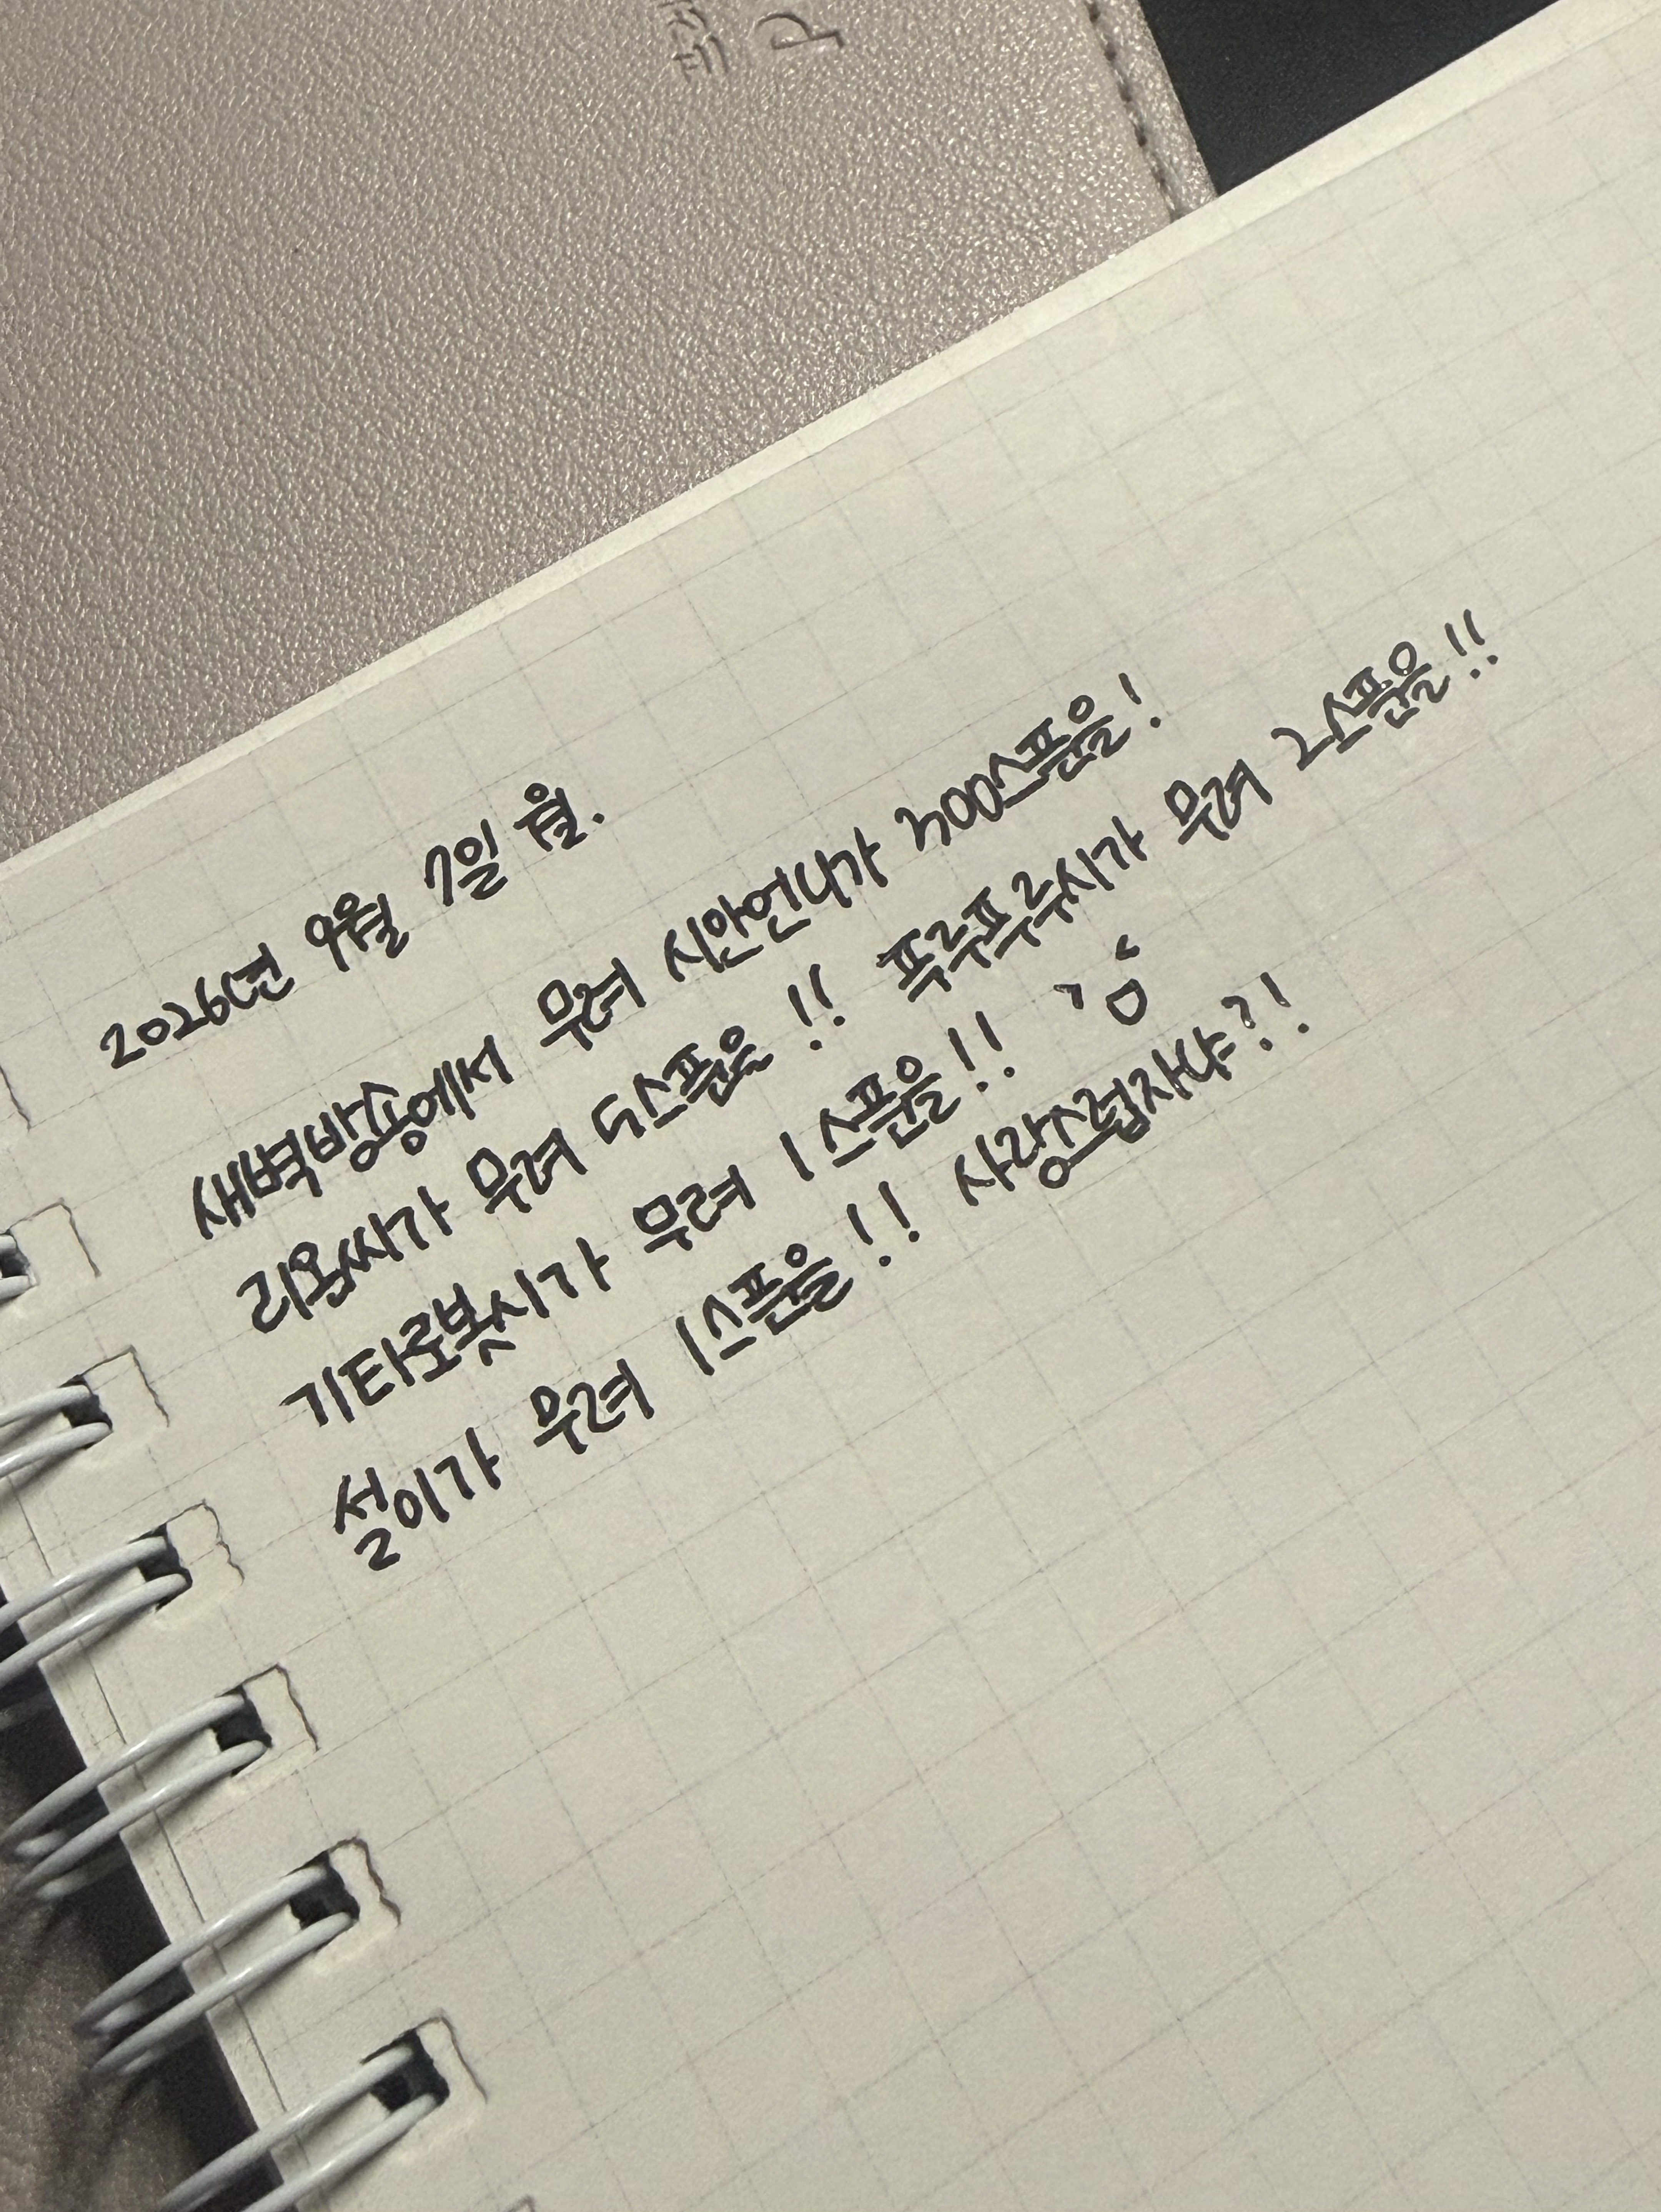 2026년 9월 7일 월.
새벽방송에서 무려 시안언니가 300스푼을!
리옹씨가 무려 5스푼을!! 프루프루시가 무려 2스푼을!!
기타로봇시가 무려 1스푼을!! `ㅇ´
설이가 무려 1스푼을!! 사랑스럽자냐?!